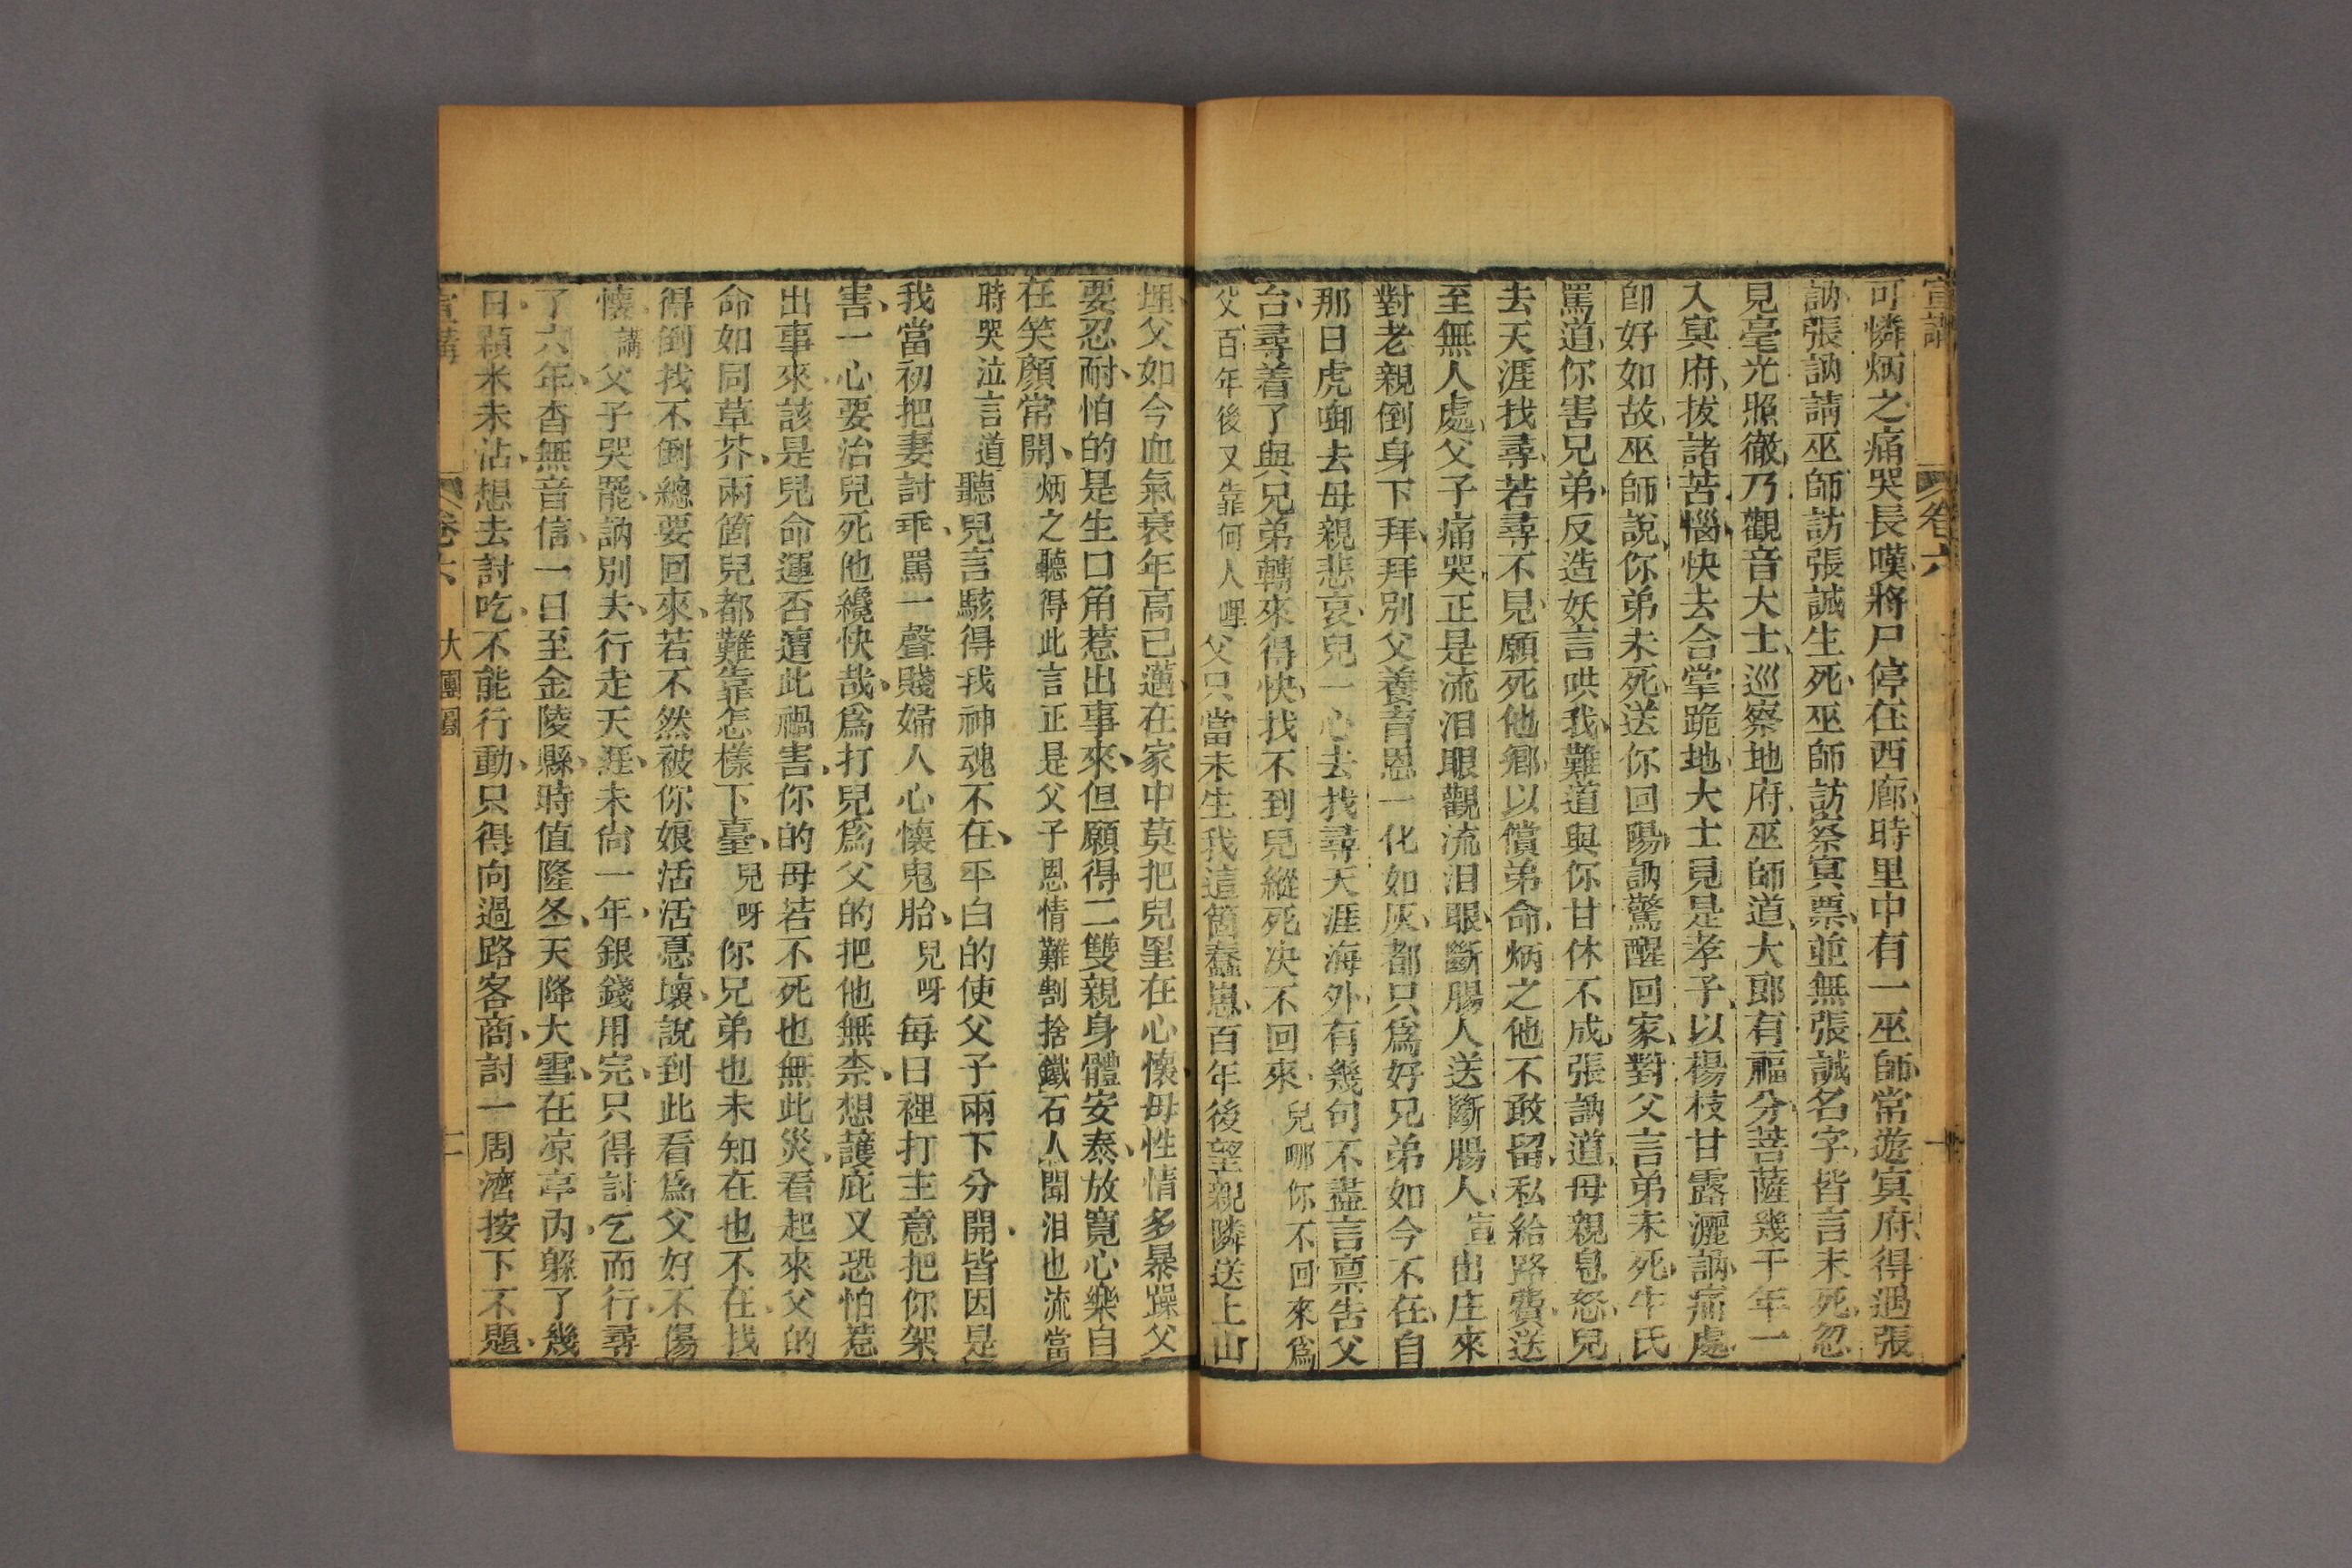 宣講 卷六
可憐炳之痛哭長嘆將尸停在西廊時里中有一巫師常遊冥府得遇張
訥張訥請巫師訪張誠生死巫師訪察冥票並無張誠名字皆言未死忽
見毫光照徹乃觀音大士巡察地府巫師道大郎有福分菩薩幾千年一
入冥府拔諸苦惱快去合掌跪地大士見是孝子以楊枝甘露灑訥痛處
卽好如故巫師說你弟未死送你回陽訥驚醒回家對父言弟未死牛氏
罵道你害兄弟反造妖言哄我難道與你甘休不成張訥道母親息怒兒
去天涯找尋若尋不見願死他鄉以償弟命炳之他不敢留私給路費送
至無人處父子痛哭正是流泪眼觀流泪眼斷腸人送斷腸人宣出庄來
對老親倒身下拜拜別父養育恩一化如灰都只爲好兄弟如今不在自
那日虎啣去母親悲哀兒一心去找尋天涯海外有幾句不盡言禀告父
台尋着了與兄弟轉來得快找不到兒縱死决不回來兒哪你不回來爲
父百年後又靠何人哩父只當未生我這箇蠢崽百年後望親隣送上山
埋父如今血氣衰年高己邁在家中莫把兒罣在心懷母性情多暴躁父
要忍耐怕的是生口角惹出事來但願得二雙親身體安泰放寬心樂自
在笑顏常開炳之聽得此言正是父子恩情難割捨鐵石人聞泪也流當
時哭泣言道聽兒言駭得我神魂不在平白的使父子兩下分開皆因是
我當初把妻討乖罵一聲賤婦人心懷鬼胎兒呀每日裡打主意把你架
害一心要治兒死他纔快哉爲打兒爲父的把他無柰想護庇又恐怕惹
出事來該是兒命運否遭此禍害你的母若不死也無此災看起來父的
命如同草芥兩箇兒都難靠怎樣下臺兒呀你兄弟也未知在也不在找
得倒找不倒總要回來若不然被你娘活活慪壞說到此看爲父好不傷
懷講父子哭罷訥別去行走天涯未尙一年銀錢用完只得討乞而行尋
了六年杳無音信一日至金陵縣時值隆冬天降大雪在凉亭内躲了幾
日顆米未沾想去討吃不能行動只得向過路客商討一周濟按下不題
宣講 卷六 大團圓